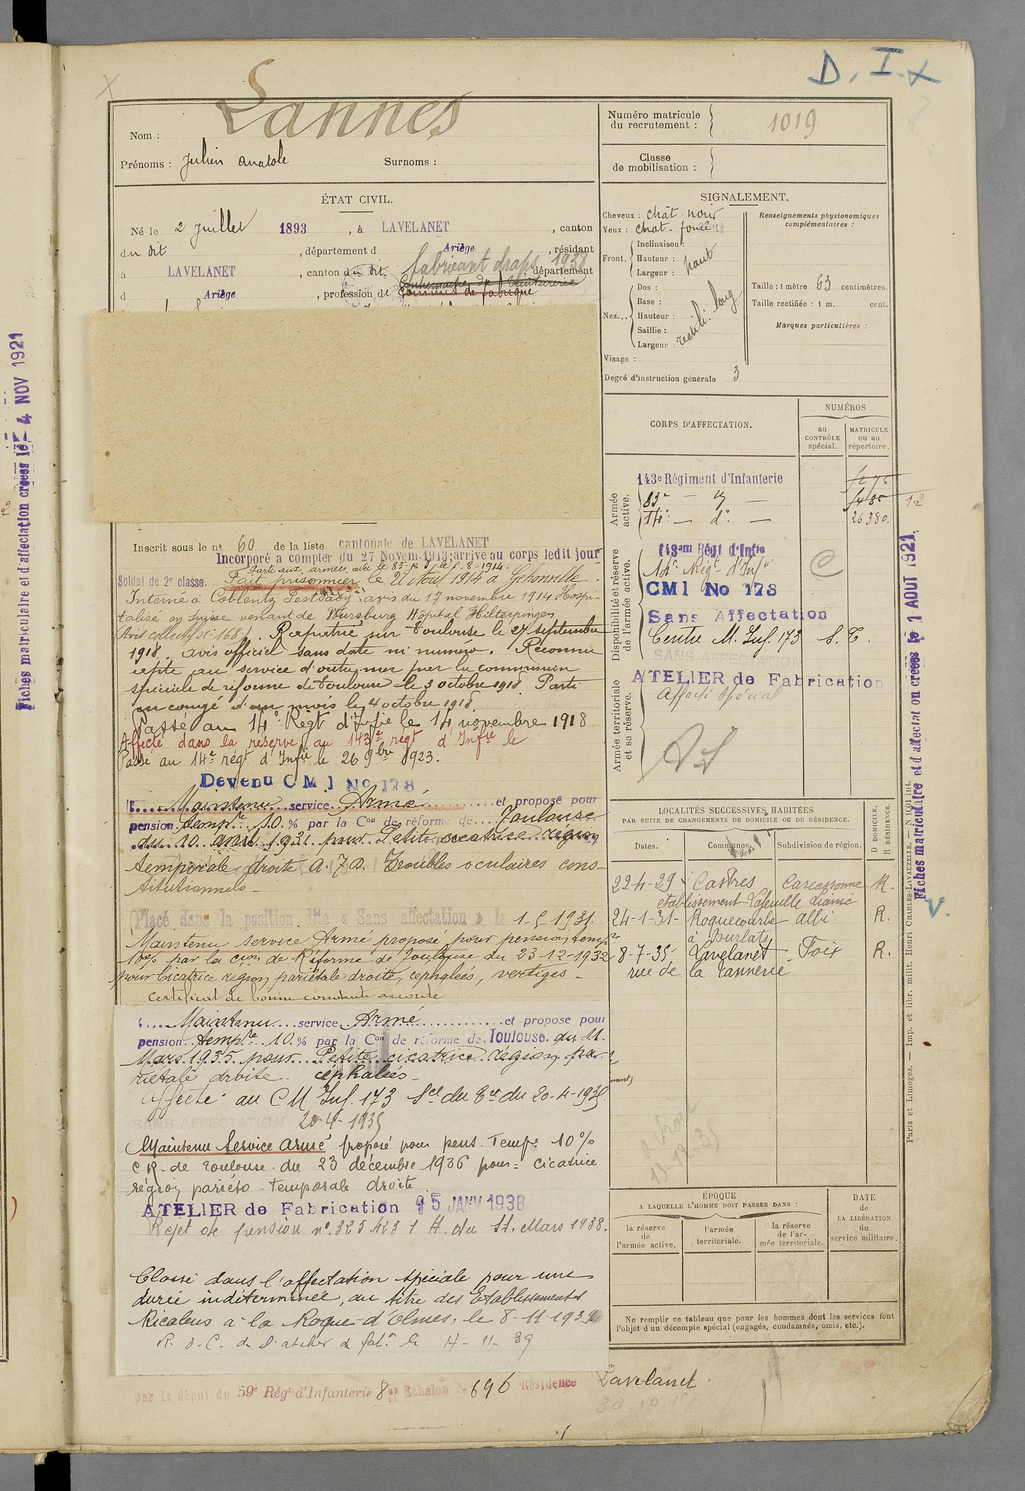 D. I. x
Nom : Lannes
Prénoms : Julien Anatole Surnoms :
Numéro matricule du recrutement : 1019
Classe de mobilisation :
ÉTAT CIVIL.
Né le 2 Juillet 1893, à LAVELANET, canton
du dit, département d Ariège, résidant
à LAVELANET, canton du dit, département
d Ariège, profession de
fabricant draps 1938
Contremaître de Teinturerie
Commis de fabrique
SIGNALEMENT.
Cheveux : chât. noir
Yeux : chat. foncé
Front. Inclinaison :
Hauteur : haut
Largeur :
Nez... Dos :
Base :
Hauteur :
Saillie :
Largeur :
rectili. long
Visage :
Degré d'instruction générale 3
Renseignements physionomiques complémentaires :
Taille : 1 mètre 63 centimètres.
Taille rectifiée : 1 m. cent.
Marques particulières :
CORPS D'AFFECTATION.
NUMÉROS
AU CONTRÔLE spécial.
MATRICULE OU AU répertoire.
Armée active.
143e Régiment d'Infanterie
83e — d° —
14e — d° — 26380
12
Disponibilité et réserve de l'armée active.
143am Régt d'Infie
14e Régt d'Infie
CMI No 178
Sans Affectation
Centre M. Inf. 173 S. C.
SANS AFFECTATION
Armée territoriale et sa réserve.
ATELIER de Fabrication
Affecté Spécial
Inscrit sous le n° 60 de la liste cantonale de LAVELANET
Incorporé à compter du 27 Novem. 1913; arrivé au corps ledit jour
Soldat de 2e classe.
Parti aux armées avec le 83e
Fait prisonnier le
Interné à Coblentz avis du 17 novembre 1914 Hospi-
talisé en Suisse venant de Wursburg Hôpital Hilterfingen
Rapatrié sur Toulouse le 27 septembre
1918, avis officiel sans date ni numéro. Reconnu
apte au service d'outre mer par la commission
spéciale de réforme de Toulouse le 3 octobre 1918. Parti
en congé d'un mois le 4 octobre 1918
Passé au 14e Régt d'Infie le 14 novembre 1918
Affecté dans la réserve au 143e régt d'Infie le
Passé au 14e régt d'Infie le 26 9bre 1923.
Devenu C M I No 178
Maintenu service Armé et proposé pour
pension temp.re 10 % par la Con de réforme de Toulouse
du 10 avril 1931 pour Petite cicatrice région
temporale droite A.P.D. Troubles oculaires cons-
titutionnels -
Placé dans la position dite « Sans affectation » le 1.5.1931
Maintenu service Armé proposé pour pension temp.re
10% par la Cion de Réforme de Toulouse du 23-12-1932
pour Cicatrice région pariétale droite, céphalées, vertiges -
Certificat de bonne conduite accordé
Maintenu service Armé et proposé pour
pension temp.re 10 % par la Con de réforme de Toulouse du 11
Mars 1935 pour Petite cicatrice région pa-
riétale droite. céphalées
Affecté au C M Inf. 173
SANS AFFECTATION
20-4-1935
Maintenu Service armé proposé pour pens. Temp.re 10 %
C R. de Toulouse du 23 décembre 1936 pour = cicatrice
région pariéto-temporale droite
ATELIER de Fabrication 15 JANV 1938
Rejet de pension n° 325.423 du 11 Mars 1938.
Classé dans l'affectation spéciale pour une
durée indéterminée, au titre des Etablissements
Ricalens à la Roque-d'Olmes, le 8-11-193
R. d. C. de l'atelier de fabon le 4-11-39
par le dépôt du 59e Régt d'Infanterie 8 Echelon 696 Résidence Lavelanet
LOCALITÉS SUCCESSIVES HABITÉES
PAR SUITE DE CHANGEMENTS DE DOMICILE OU DE RÉSIDENCE.
Dates. Communes. Subdivision de région. D DOMICILE. R RÉSIDENCE.
22-4-29 Castres Carcassonne R.
24-1-31 Roquecourbe Albi R.
à Burlats
8-7-35 Lavelanet Foix R.
rue de la Tannerie
ÉPOQUE
A LAQUELLE L'HOMME DOIT PASSER DANS :
la réserve de l'armée active.
l'armée territoriale.
la réserve de l'armée territoriale.
DATE de LA LIBÉRATION du service militaire.
Ne remplir ce tableau que pour les hommes dont les services font
l'objet d'un décompte spécial (engagés, condamnés, omis, etc.).
Fiches matriculaire et d'affectation créées le 4 NOV 1921
Fiches matriculaire et d'affectation créées le 1 AOUT 1921
Paris et Limoges. — Imp. et libr. milit. Henri CHARLES-LAVAUZELLE.